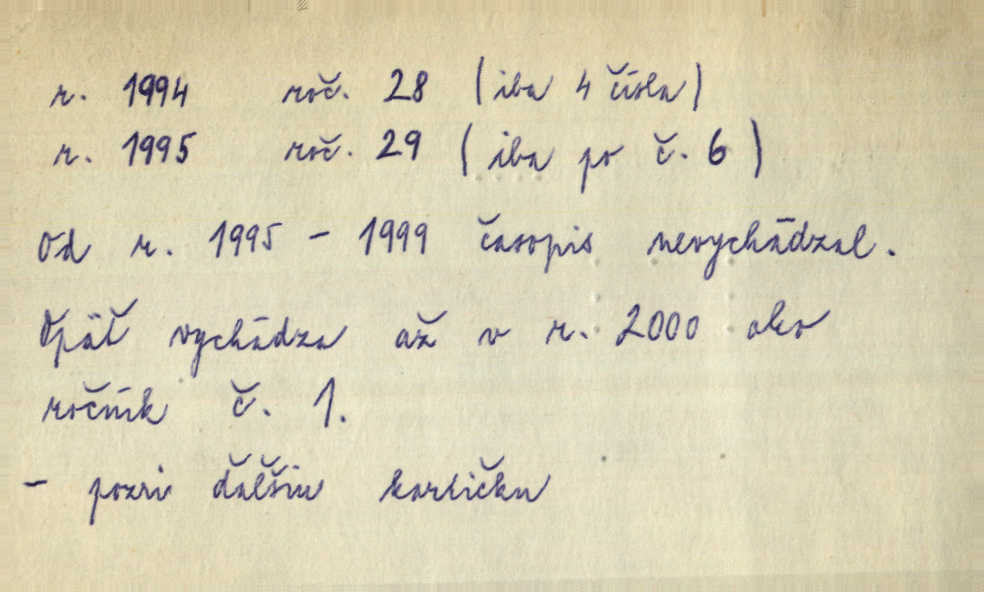 r. 1994 roč. 28 (iba 4 čísla)
r. 1995 roč. 29 (iba po č. 6)
Od r. 1995 - 1999 časopis nevychádzal.
Opäť vychádza až v r. 2000 ako
ročník č. 1.
- pozri ďalšiu kartičku